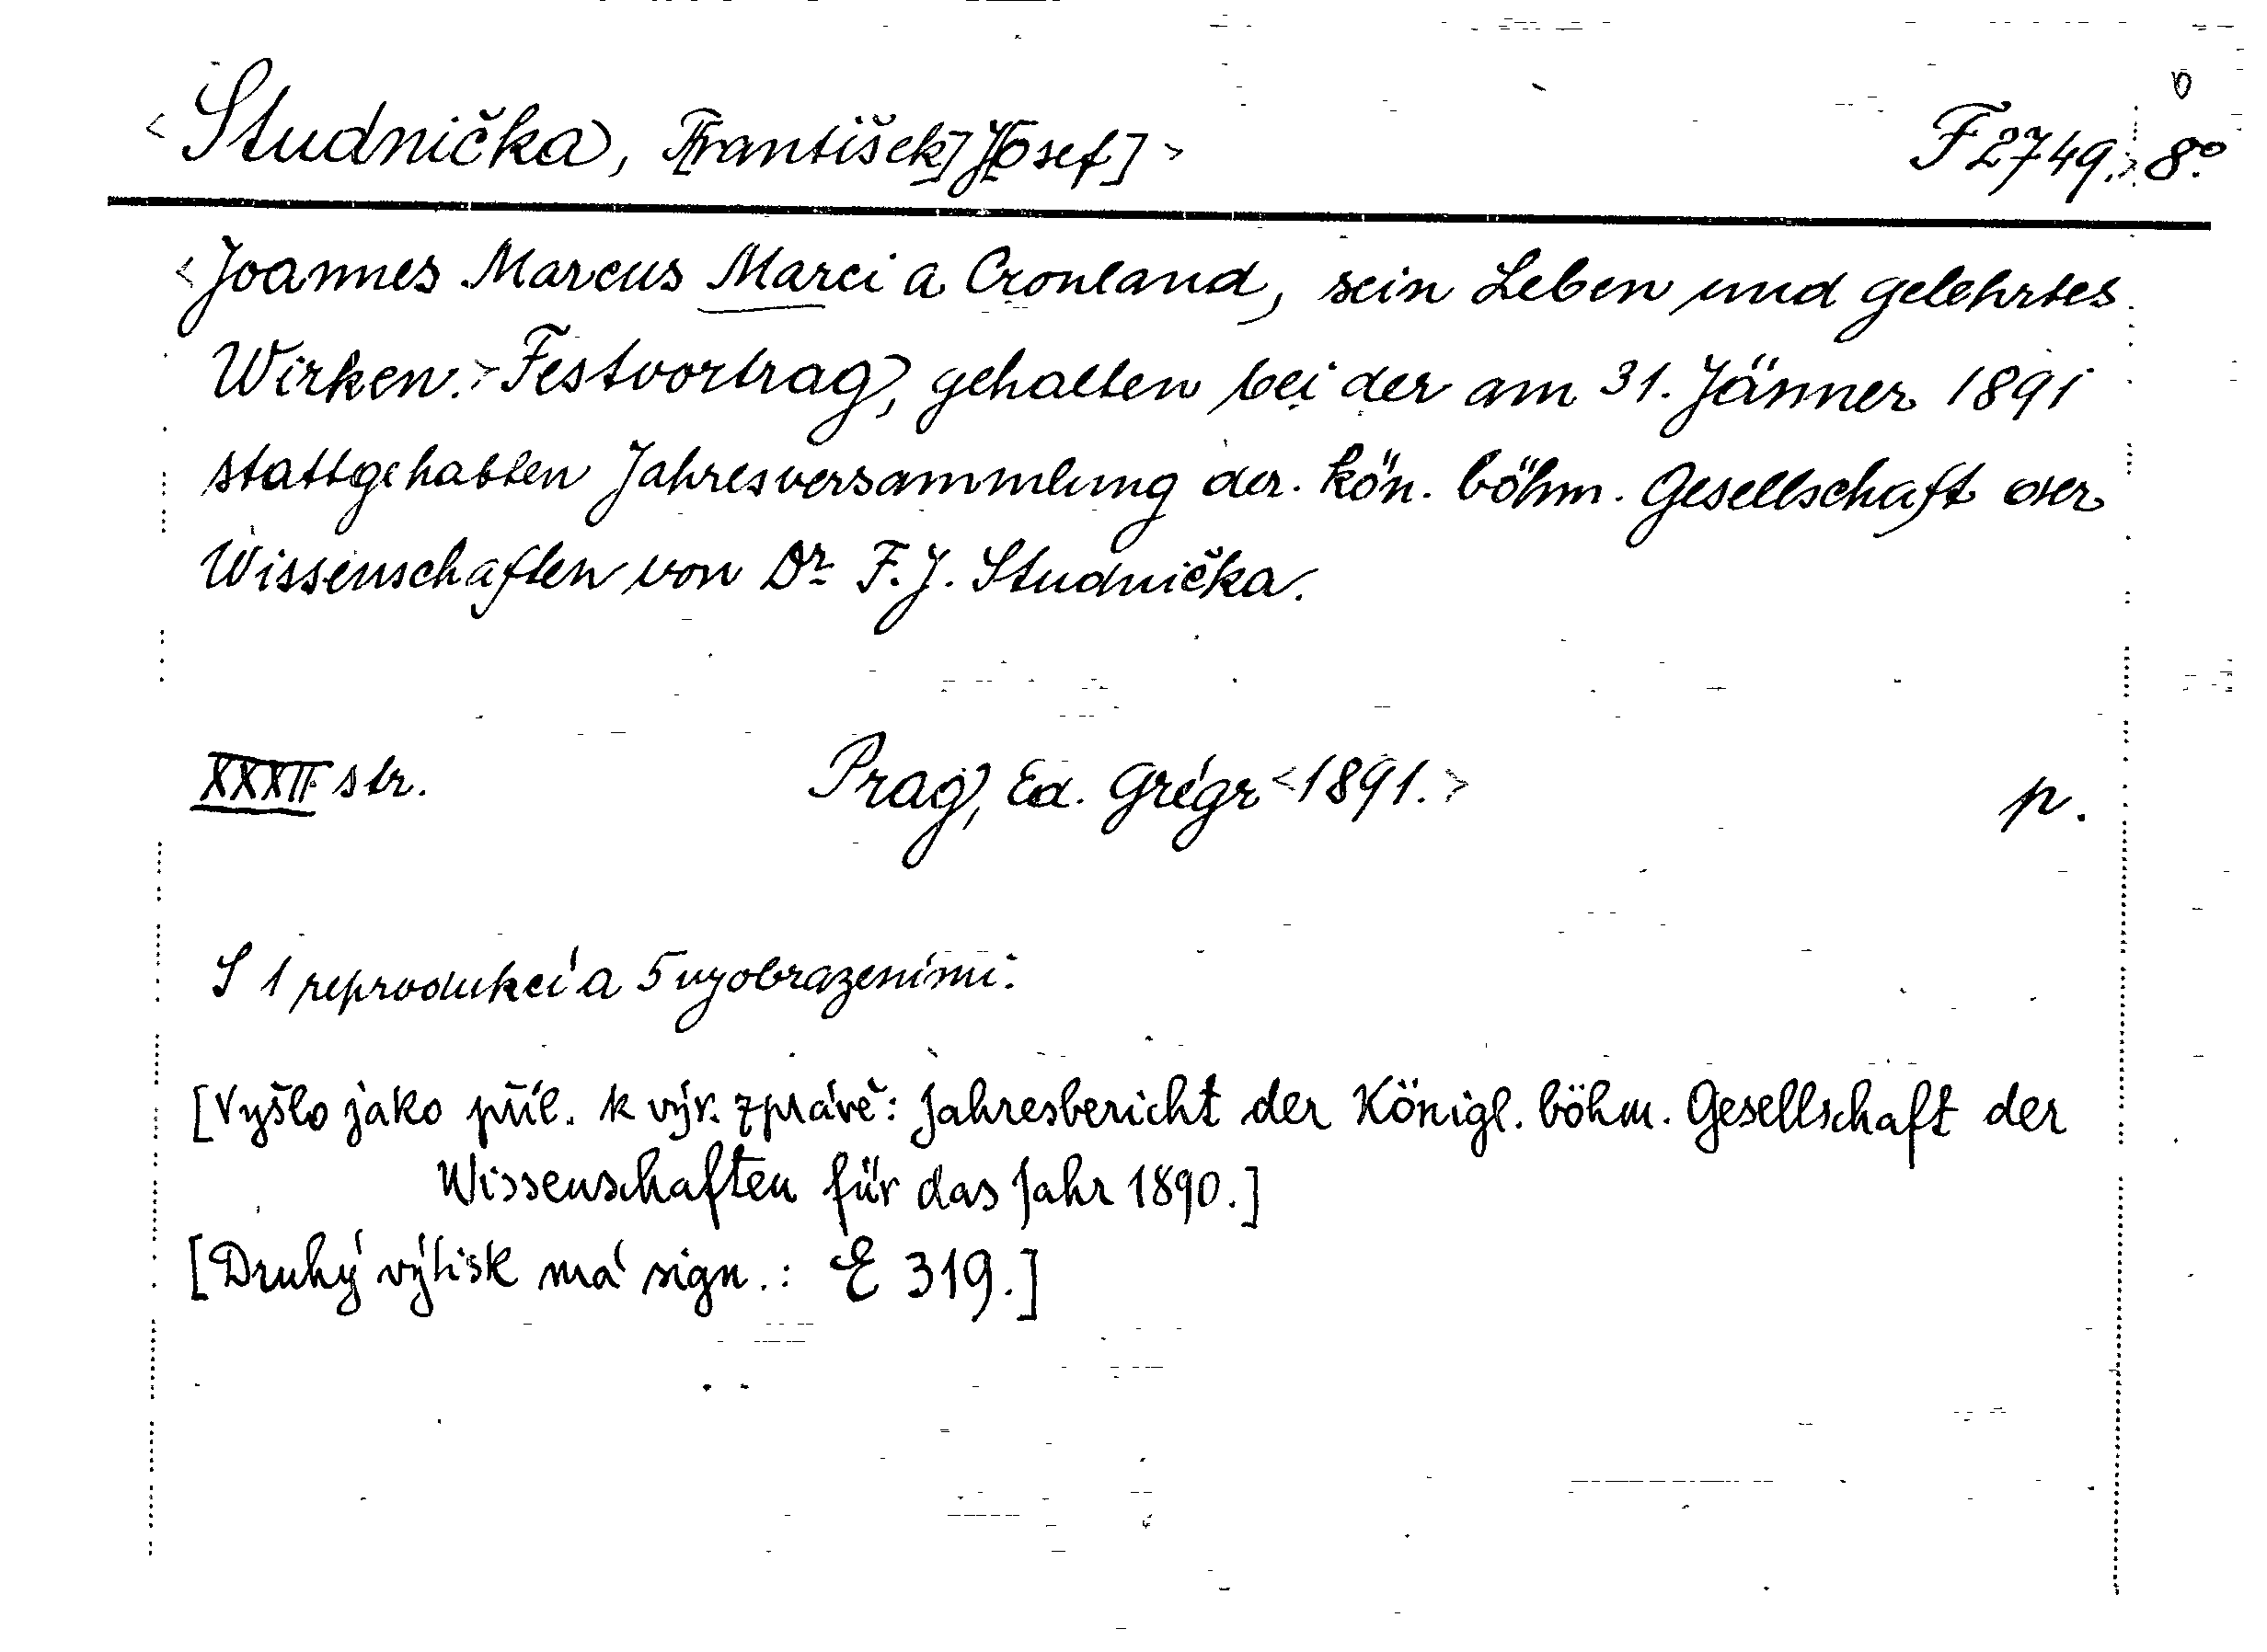 <Studnička, F[rantišek] J[osef]> F 2749. 8°
<Joannes Marcus Marci a Cronland, sein Leben und gelehrtes
Wirken.> Festvortrag, gehalten bei der am 31. Jänner 1891
stattgehabten Jahresversammlung der. kön. böhm. Gesellschaft der
Wissenschaften von Dr. F. J. Studnička.
XXXII str. Prag, Ed. Grégr <1891.> p.
S 1 reprodukcí a 5 vyobrazeními.
[Vyšlo jako příl. k výr. zprávě: Jahresbericht der Königl. böhm. Gesellschaft der
Wissenschaften für das Jahr 1890.]
[Druhý výtisk má sign.: E 319.]